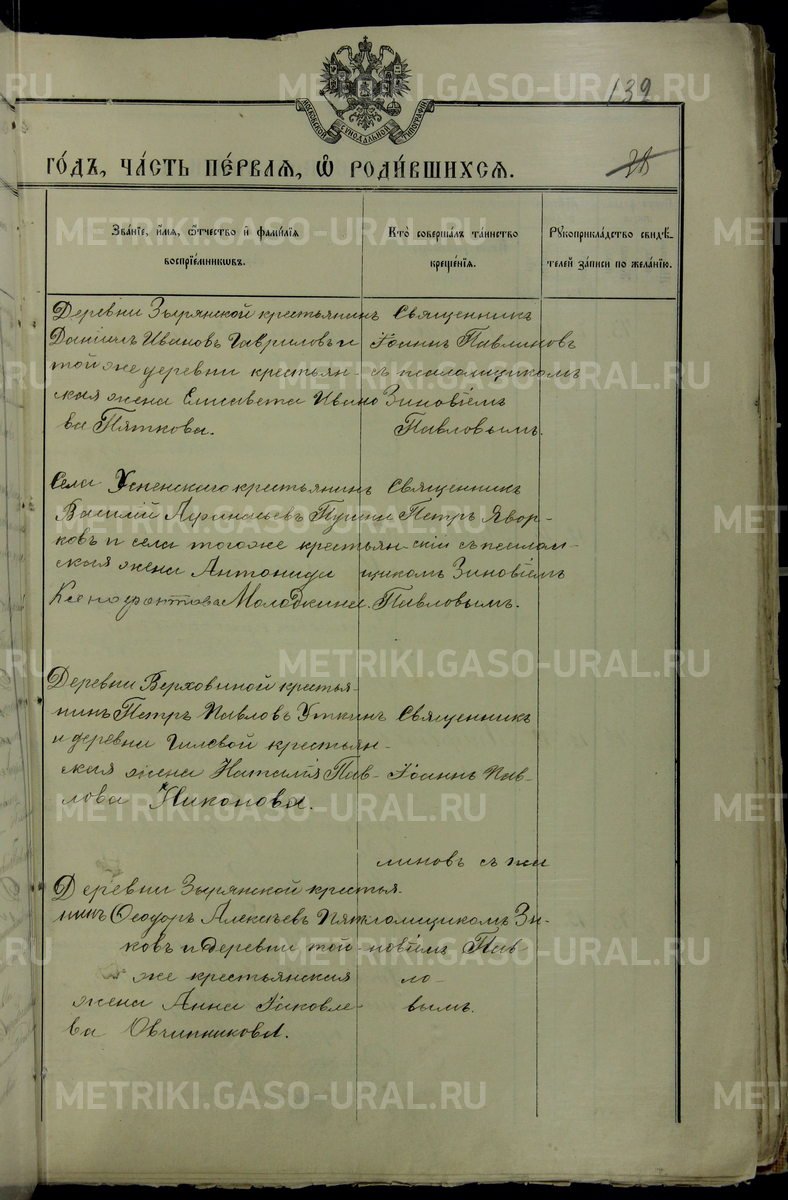 139
МОСКОВСКОЙ СѴНОДАЛЬНОЙ ТИПОГРАФІИ
ГО́ДЪ, ЧА́СТЬ ПЕ́РВАѦ, Ѡ҆ РОДИ́ВШИХСѦ.
28
Зва́нїе, и҆́мѧ, ѻ҆́тчество и҆ фами́лїѧ
воспрїе́мникѡвъ.
Кто̀ соверша́лъ та́инство
креще́нїѧ.
Рꙋкоприкла́дство свидѣ́-
телей за́писи по жела́нїю.
Деревни Зырянской крестьянинъ
Даніилъ Ивановъ Гавриловъ и
той же деревни крестьян-
ская жена Елисавета Ивано
ва Пяткова.
Священникъ
Іоаннъ Павлиновъ
съ псаломщикомъ
Зиновіемъ
Павловымъ.
Села Успенскаго крестьянинъ
Василій Аѳанасьевъ Пуши
ковъ и села тогоже крестьян-
ская жена Антонида
Ксенофонтова Молодкина.
Священникъ
Петръ Явор-
скій съ псалом-
щикомъ Зиновіемъ
Павловымъ.
Деревни Верховиной крестья-
нинъ Петръ Павловъ Уткинъ
и деревни Гилевой крестьян-
ская жена Наталія Пав-
лова Никонова.
Священникъ
Іоаннъ Пав-
линовъ съ пса
Деревни Зырянской крестья-
нинъ Ѳеодоръ Алексѣевъ Пят
ковъ и деревни той-
же крестьянская
жена Анна Іаковле-
ва Овчинникова.
ломщикомъ Зи-
новіемъ Пав
ло-
вымъ.
METRIKI.GASO-URAL.RU